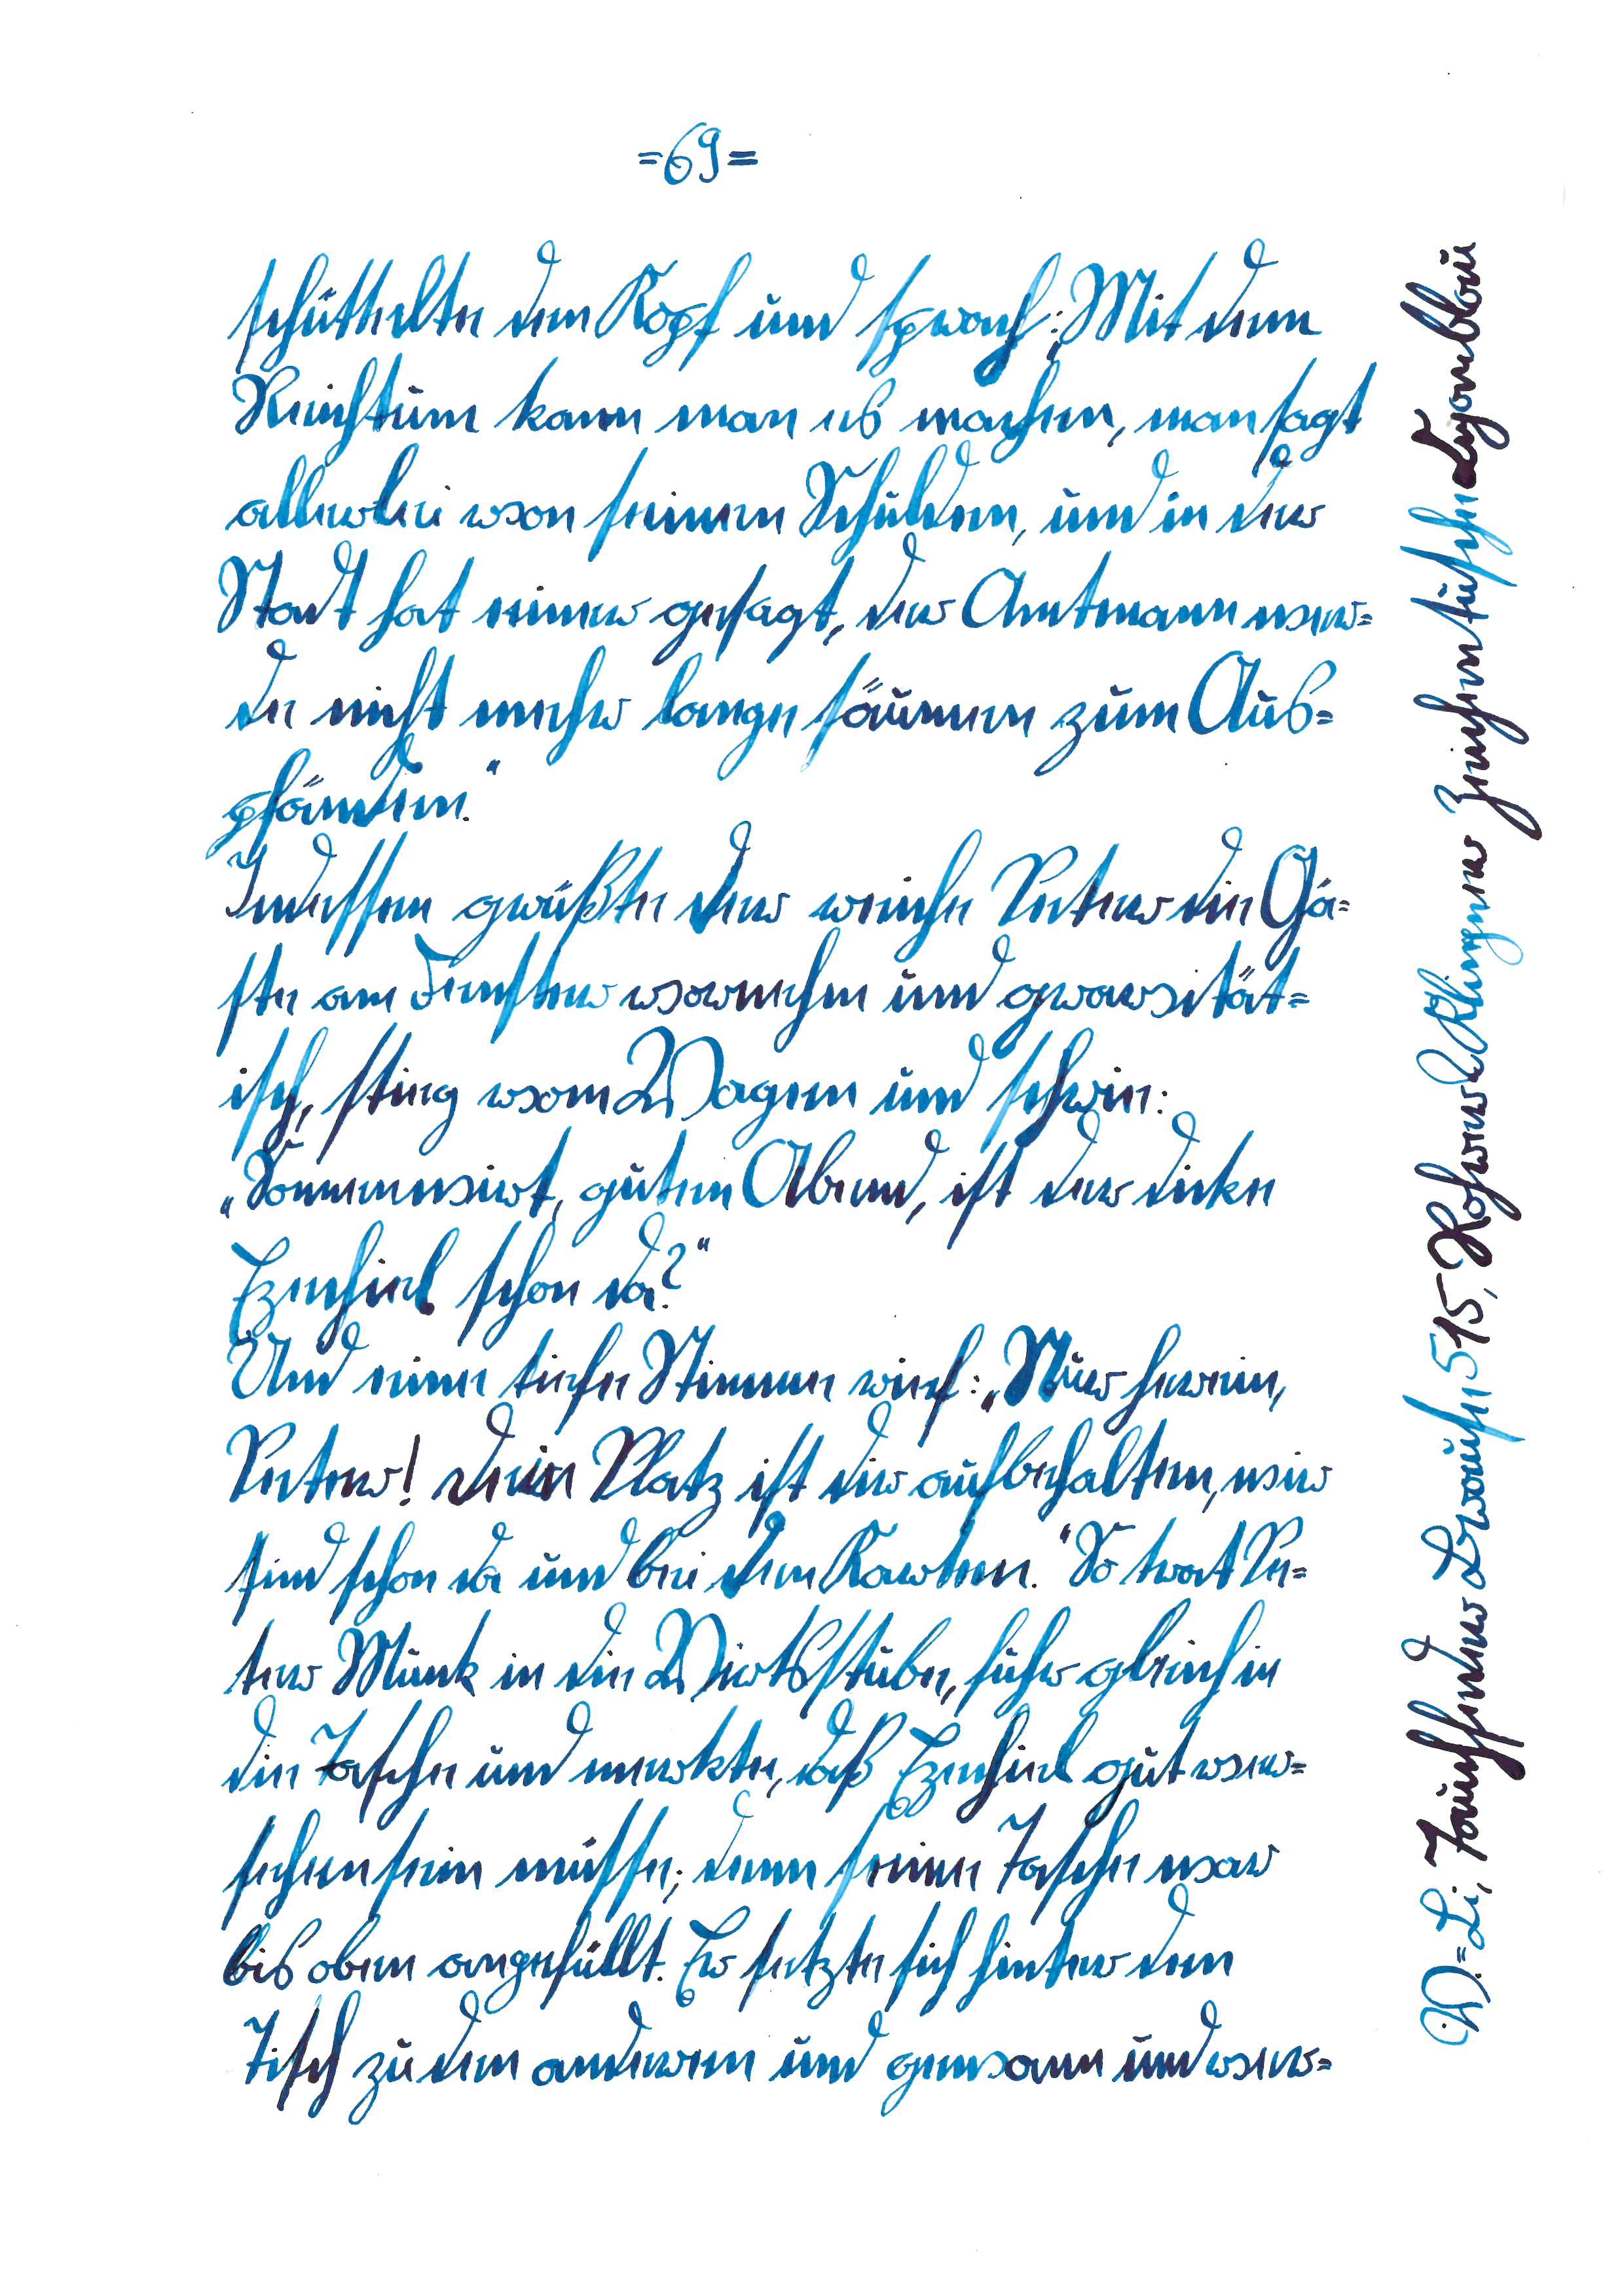 =69=
schüttelte den Kopf und sprach: „Mit dem
Reichtum kann man es machen, man sagt
allerlei von seinen Schulden, und in der
Stadt hat einer gesagt, der Amtmann wer=
de nicht mehr lange säumen zum Aus=
pfänden.“
Indessen grüßte der reiche Peter die Gä=
ste am Fenster vornehm und gravität=
isch, stieg vom Wagen und schrie:
„Sonnenwirt, guten Abend, ist der dicke
Ezechiel schon da?“
Und eine tiefe Stimme rief: „Nur herein,
Peter! Dein Platz ist dir aufbehalten, wir
sind schon da und bei den Karten.“ So trat Pe=
ter Munk in die Wirtsstube, fuhr gleich in
die Tasche und merkte, daß Ezechiel gut ver=
sehen sein müsse; denn seine Tasche war
bis oben angefüllt. Er setzte sich hinter den
Tisch zu den anderen und gewann und ver=
W.=Li, Tauchfeder Brause 515, Rohrer & Klingner Zeichentusche Cyanblau